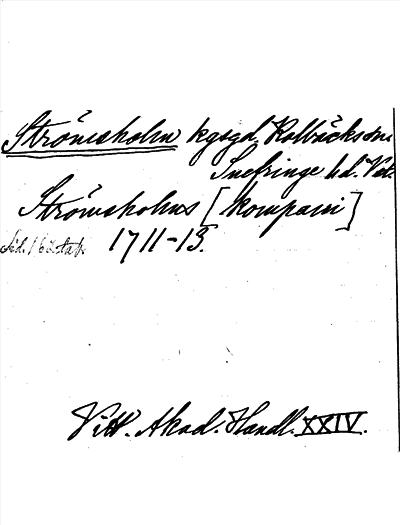 Strömsholm kgsgd, Kolbäcks sn
Snefringe hd. Vstm.
Strömsholms [kompani]
1711-13.
Vitt. Akad. Handl. XXIV.